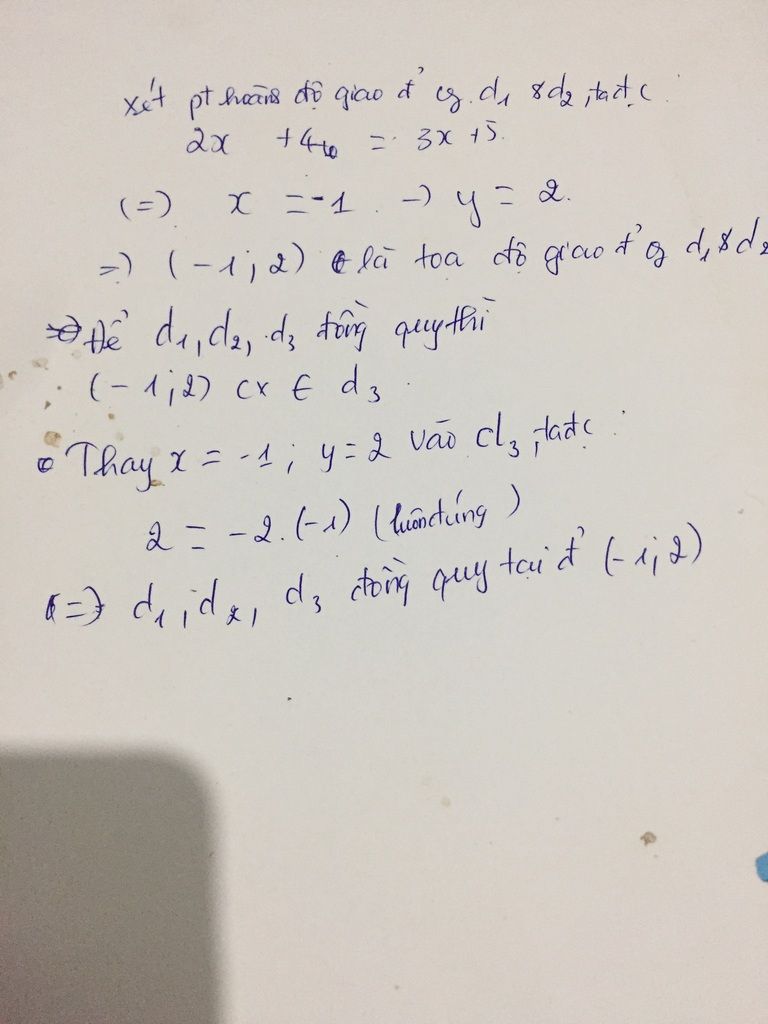 xét pt hoành độ giao đ' cg d1 & d2, ta đc :
2x + 4 = 3x + 5
(=) x = -1 -> y = 2.
=) (-1; 2) là tọa độ giao đ' cg d1 & d2
Để d1, d2, d3 đồng quy thì
(-1; 2) cx ∈ d3
Thay x = -1; y = 2 vào d3, ta đc :
2 = -2.(-1) (luôn đúng)
(=) d1, d2, d3 đồng quy tại đ' (-1; 2)